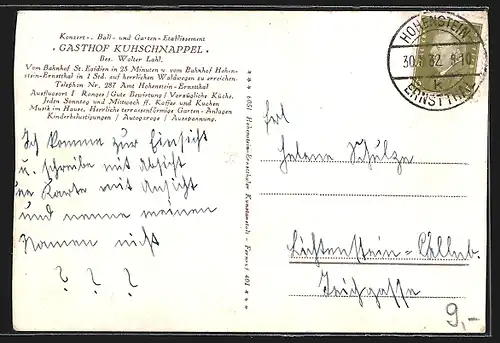 Konzert-, Ball- und Garten-Etablissement
• GASTHOF KUHSCHNAPPEL •
Bes. Walter Lahl.
Vom Bahnhof St. Egidien in 25 Minuten u. vom Bahnhof Hohen-
stein-Ernstthal in 1 Std. auf herrlichen Waldwegen zu erreichen.
Telephon Nr. 287 Amt Hohenstein-Ernstthal
Ausflugsort I. Ranges / Gute Bewirtung / Vorzügliche Küche.
Jeden Sonntag und Mittwoch ff. Kaffee und Kuchen
Musik im Hause. Herrliche terrassenförmige Garten-Anlagen
Kinderbelustigungen / Autogarage / Ausspannung.
Ich komme zur Einsicht
u. schreibe mit Absicht
'ne Karte mit Ansicht
und nenne meinen
Namen nicht
? ? ?
Hohenstein-Ernstthaler Kunstanstalt
HOHENSTEIN-
ERNSTTHAL
Frl
Helene Schulze
Lichtenstein-Callnb.
Teichgasse
9,-